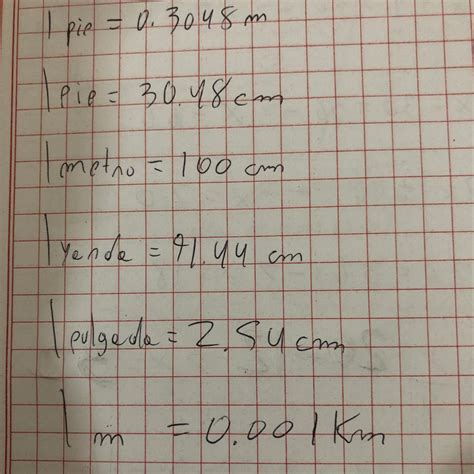 1 pie = 0.3048 m
1 pie = 30.48 cm
1 metro = 100 cm
1 yarda = 91.44 cm
1 pulgada = 2.54 cm
1 m = 0.001 Km